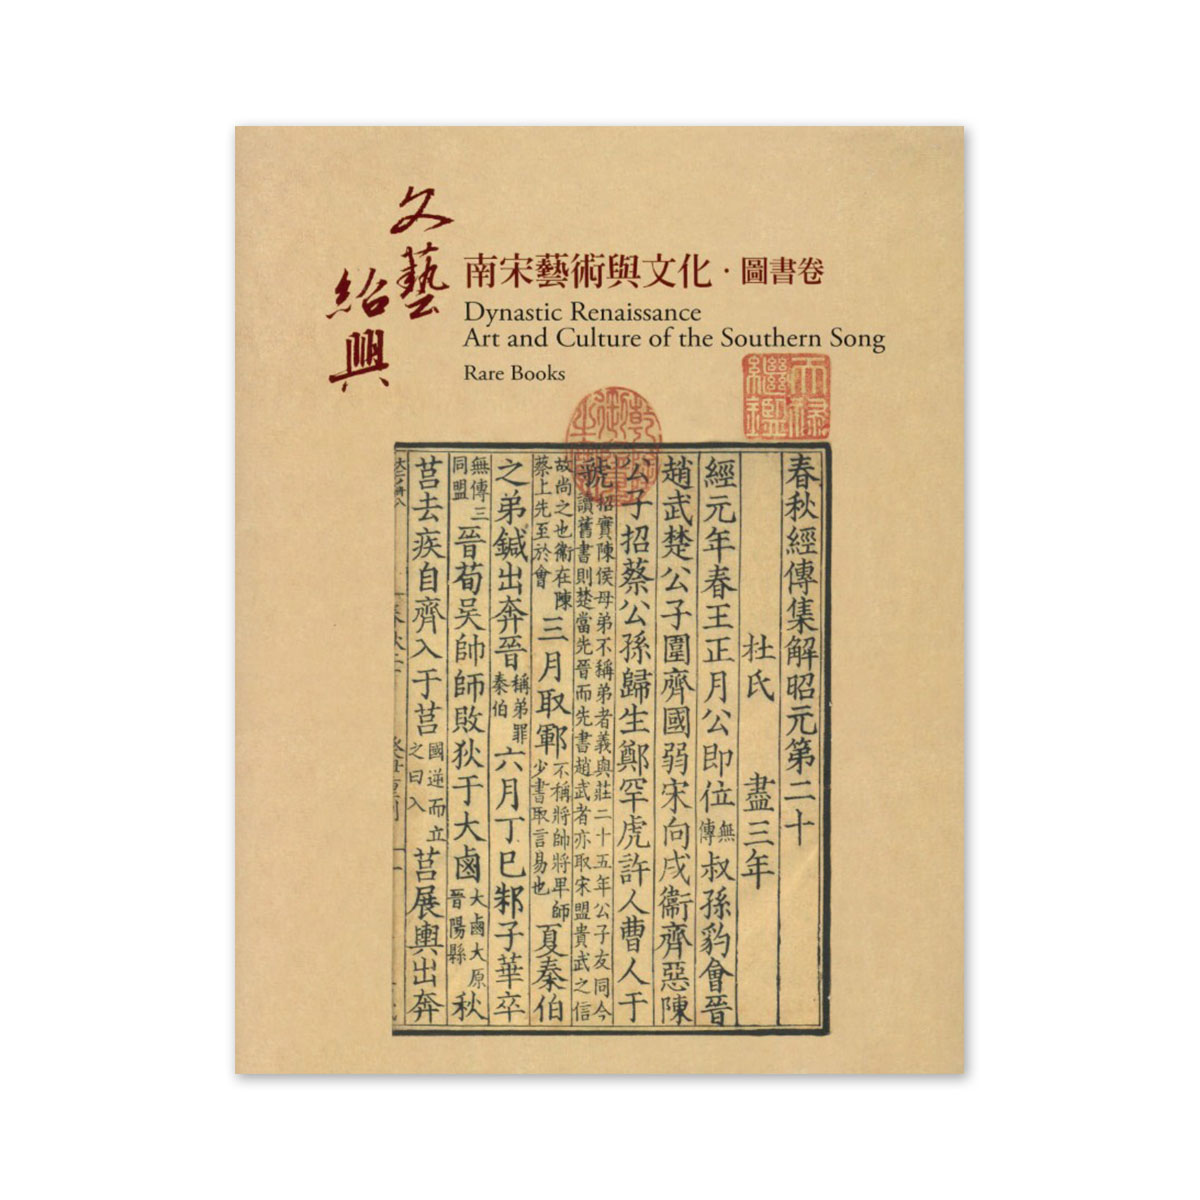 文藝
紹興
南宋藝術與文化·圖書卷
Dynastic Renaissance
Art and Culture of the Southern Song
Rare Books
天祿
繼鑑
春秋經傳集解昭元第二十
杜氏 盡三年
經元年春王正月公即位無傳叔孫豹會晉
趙武楚公子圍齊國弱宋向戌衞齊惡陳
公子招蔡公孫歸生鄭罕虎許人曹人于
虢招實陳侯母弟不稱弟者義與莊二十五年公子友同今讀舊書則楚當先晉而先書趙武者亦取宋盟貴武之信
故尚之也衞在陳蔡上先至於會三月取鄆不稱將帥將卑師少書取言易也夏秦伯
之弟鍼出奔晉稱弟罪秦伯六月丁巳邾子華卒
無傳三同盟晉荀吳帥師敗狄于大鹵大鹵大原晉陽縣秋
莒去疾自齊入于莒國逆而立之曰入莒展輿出奔